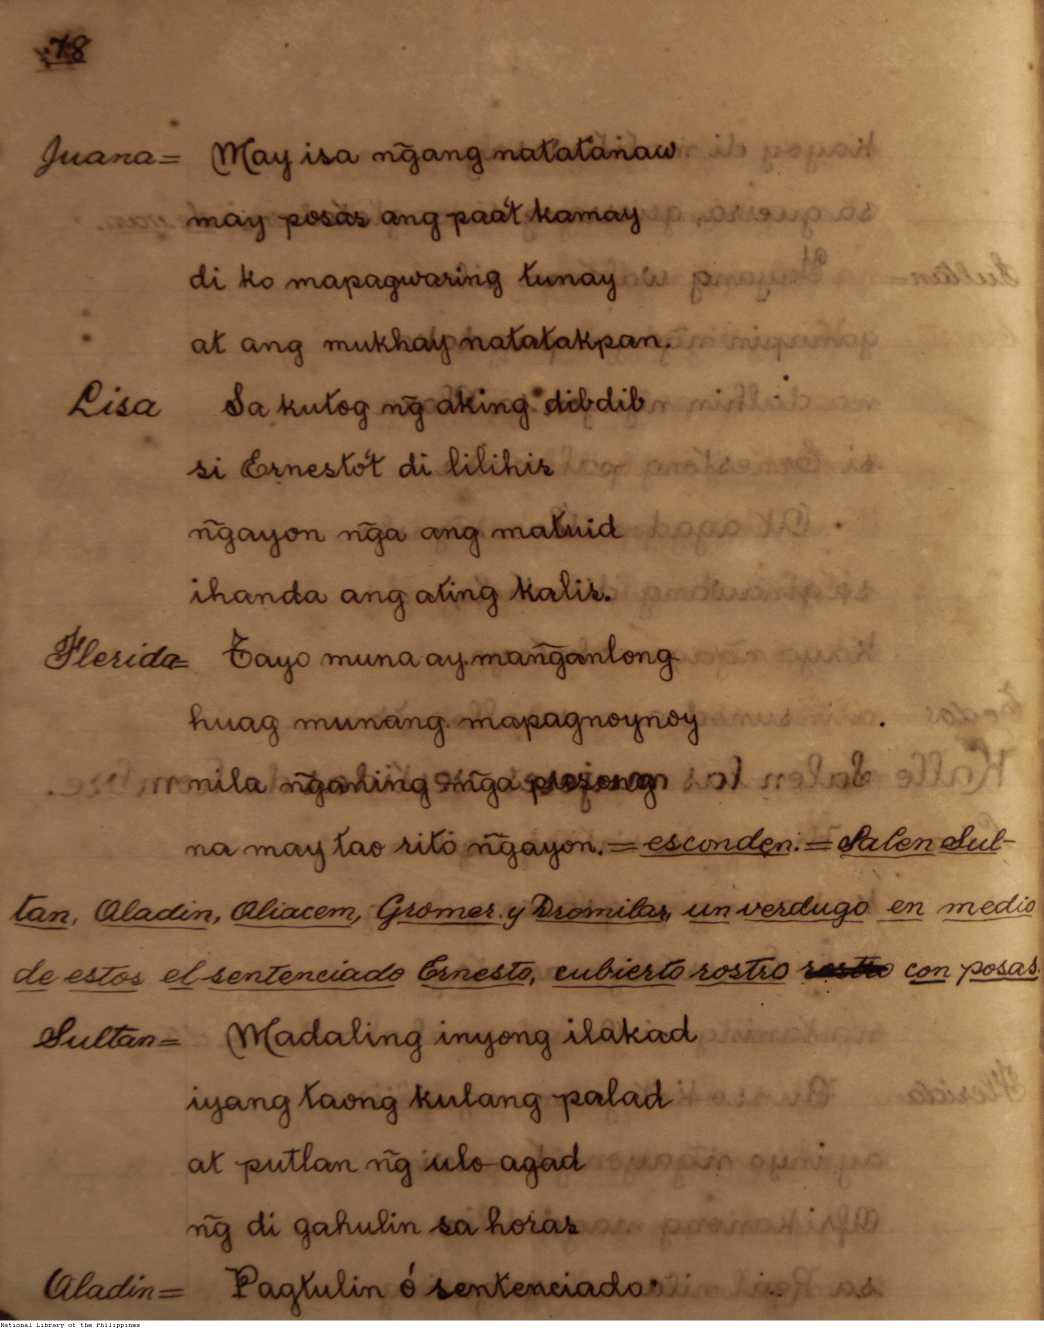 78
Juana= May isa ñgang natatanaw
may posas ang paa't kamay
di ko mapagwaring tunay
at ang mukhay natatakpan.
Lisa Sa kutog ñg aking dibdib
si Ernesto't di lilihis
ñgayon ñga ang matuid
ihanda ang ating kalis.
Flerida= Tayo muna ay mañganlong
huag munang mapagnoynoy
nila ñganing mga
na may tao rito ñgayon.=esconden.=Salen Sul-
tan, Aladin, Aliacem, Gromer y Dromilas, un verdugo en medio
de estos el sentenciado Ernesto, cubierto rostro con posas.
Sultan= Madaling inyong ilakad
iyang taong kulang palad
at putlan ñg ulo agad
ñg di gahulin sa horas
Aladin= Pagtulin ó sentenciado
National Library of the Philippines